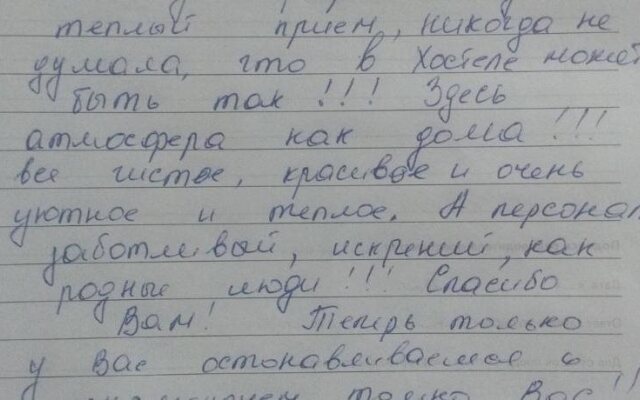 теплый прием, никогда не
думала, что в Хостеле может
быть так!!! Здесь
атмосфера как дома!!!
все чистое, красивое и очень
уютное и теплое. А персонал
заботливый, искрений, как
родные люди!!! Спасибо
Вам! Теперь только
у Вас остонавливаемся и
только Вас!!